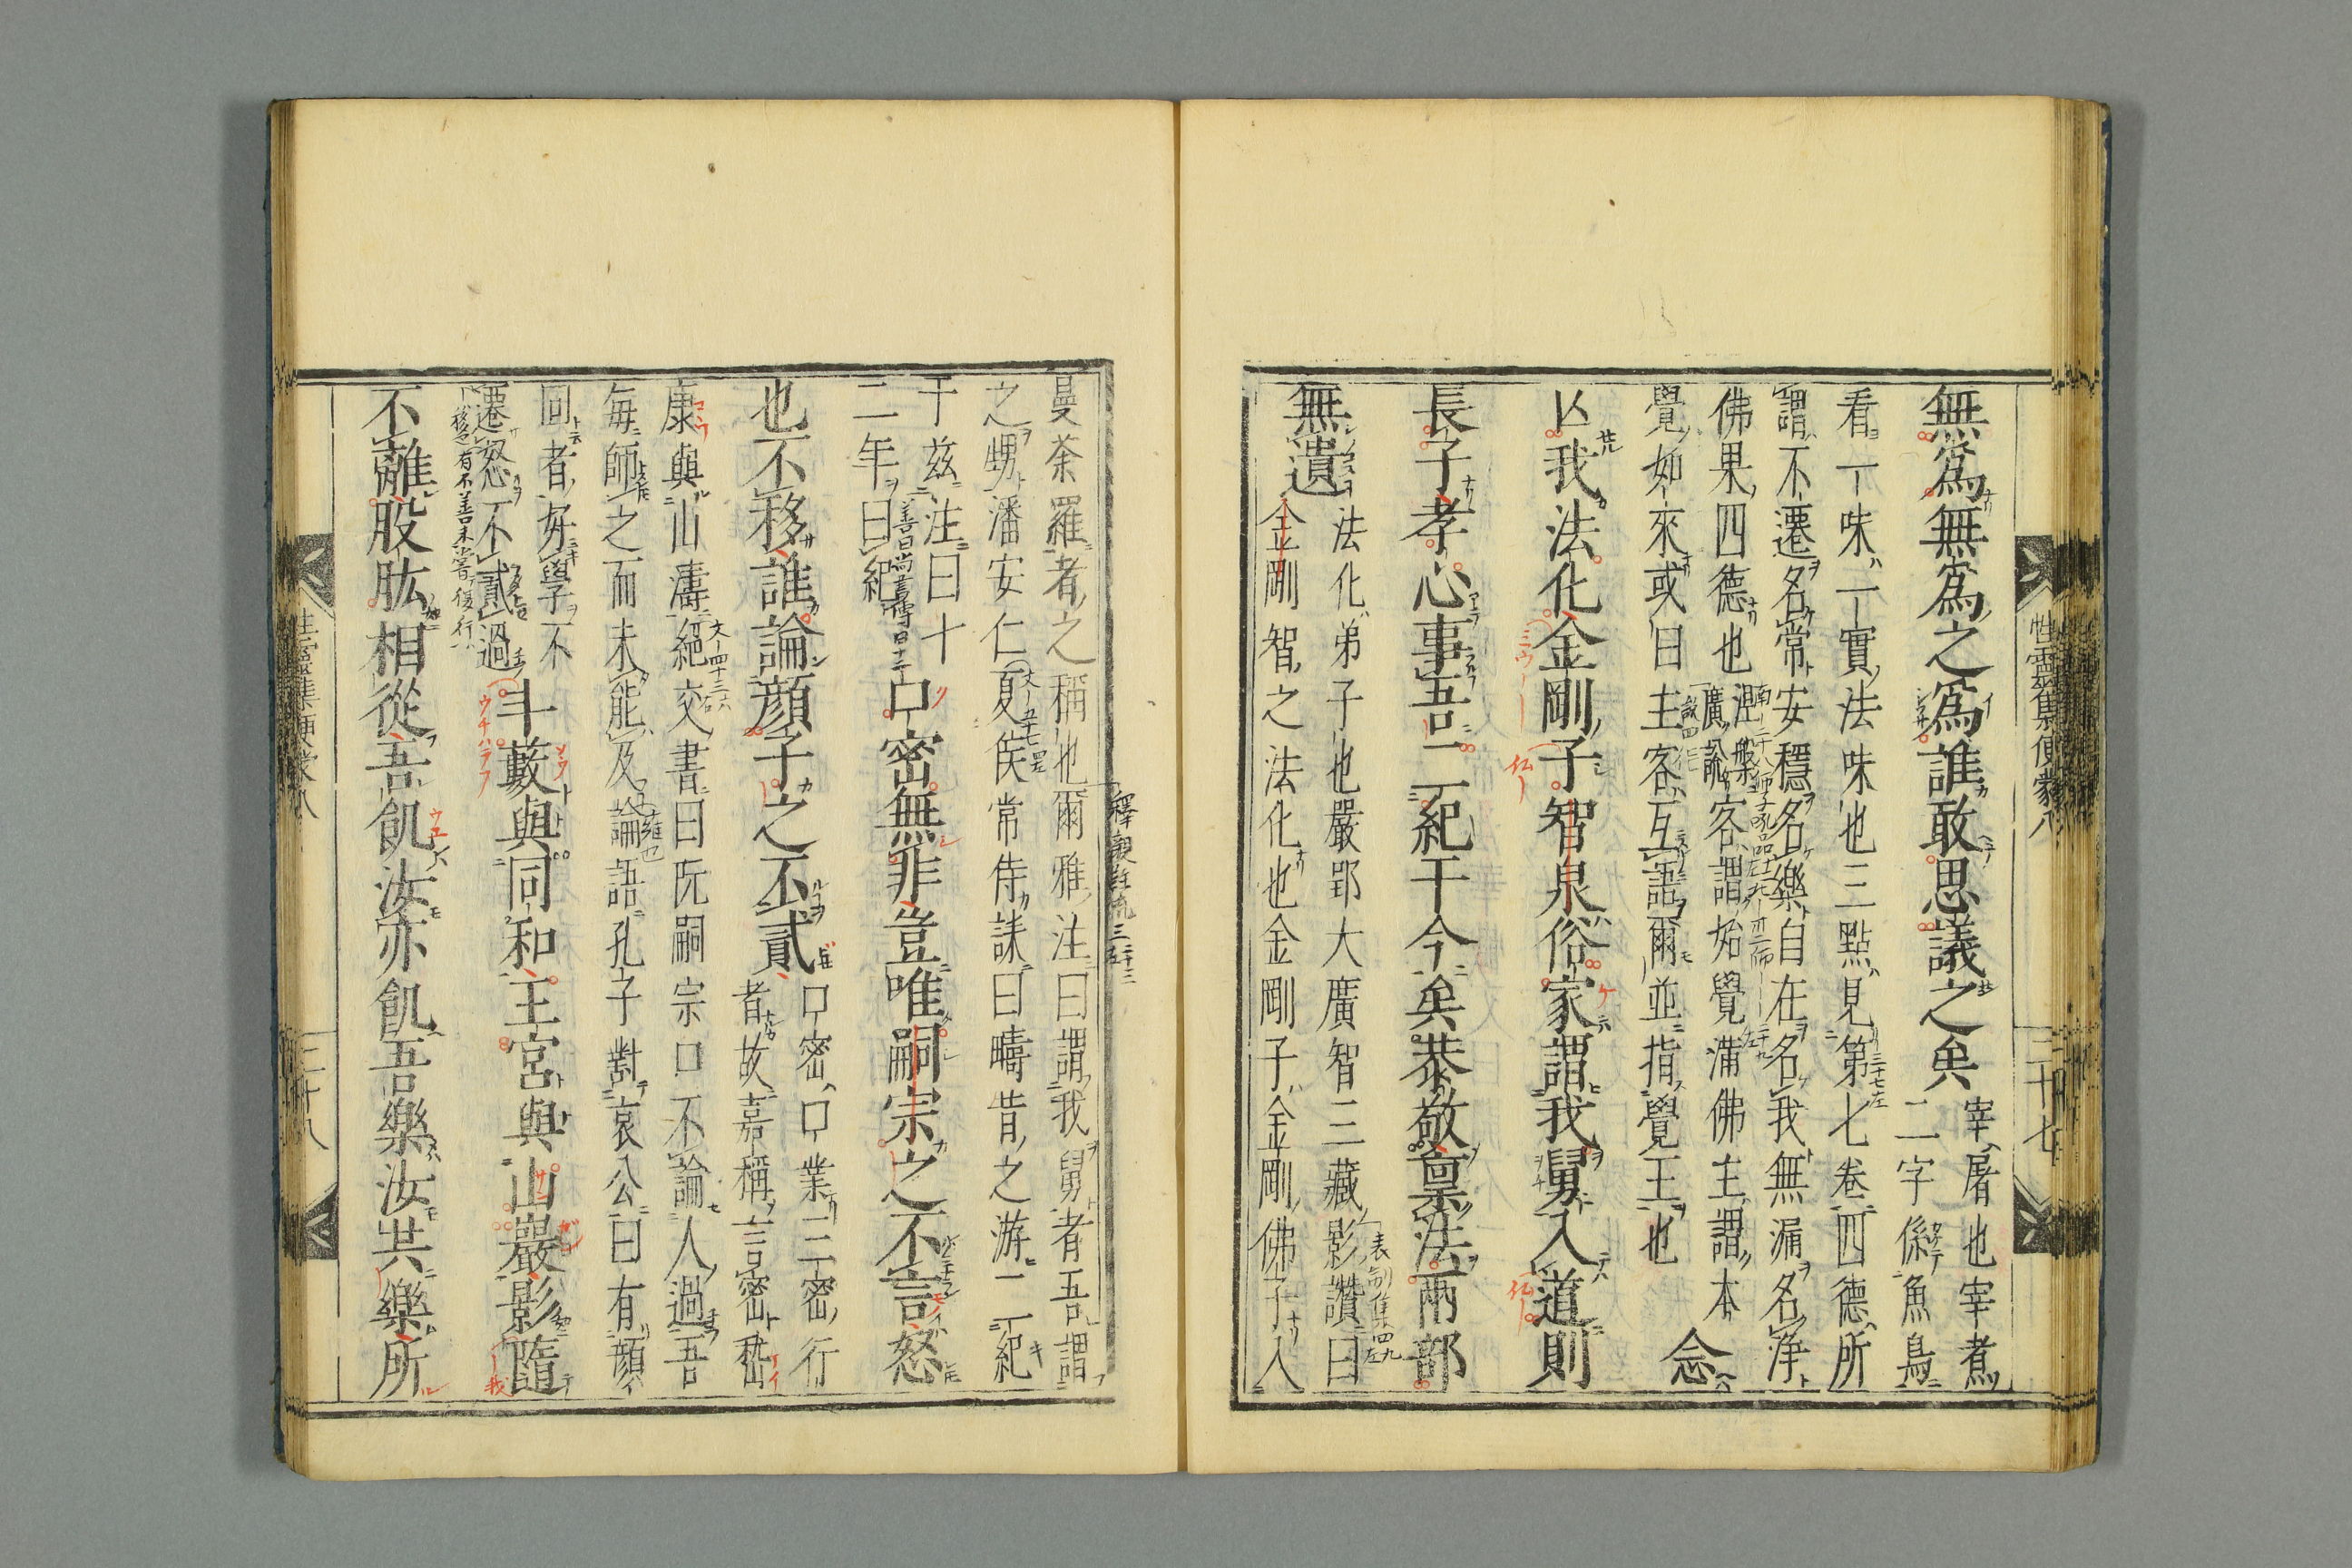 性靈集便蒙八
三十七
無爲無爲之爲誰敢思議之矣
宰屠也宰煮
二字係魚鳥
看一味一實法味也三點見第七卷四德所
謂不遷名常安穩名樂自在名我無漏名淨
佛果四德也
涅槃
客謂始覺滿佛主謂本
覺如來或曰主客互
爾並指覺王也
念
亾我法化金剛子智泉俗家謂我舅入道則
長子孝心事吾二紀于今矣恭敬禀法兩部
無遺
法化弟子也嚴郢大廣智三藏影讚曰
金剛智之法化也金剛子金剛佛子入
曼荼羅者之稱也爾雅注曰謂我舅者吾謂
之甥潘安仁夏侯常侍誄曰疇昔之游二紀
于茲注曰十
二年曰紀
口密無非豈唯嗣宗之不言怒
也不移誰論顏子之不貳
口密口業三密行
者故嘉稱言密嵆
康與山濤絕交書曰阮嗣宗口不論人過吾
每師之而未能及論語孔子對哀公曰有顏
回者好學不
遷怒不貳過
斗藪與同和王宮與山巖影隨
不離股肱相從吾飢汝亦飢吾樂汝共樂所
性靈集便蒙八
三十八